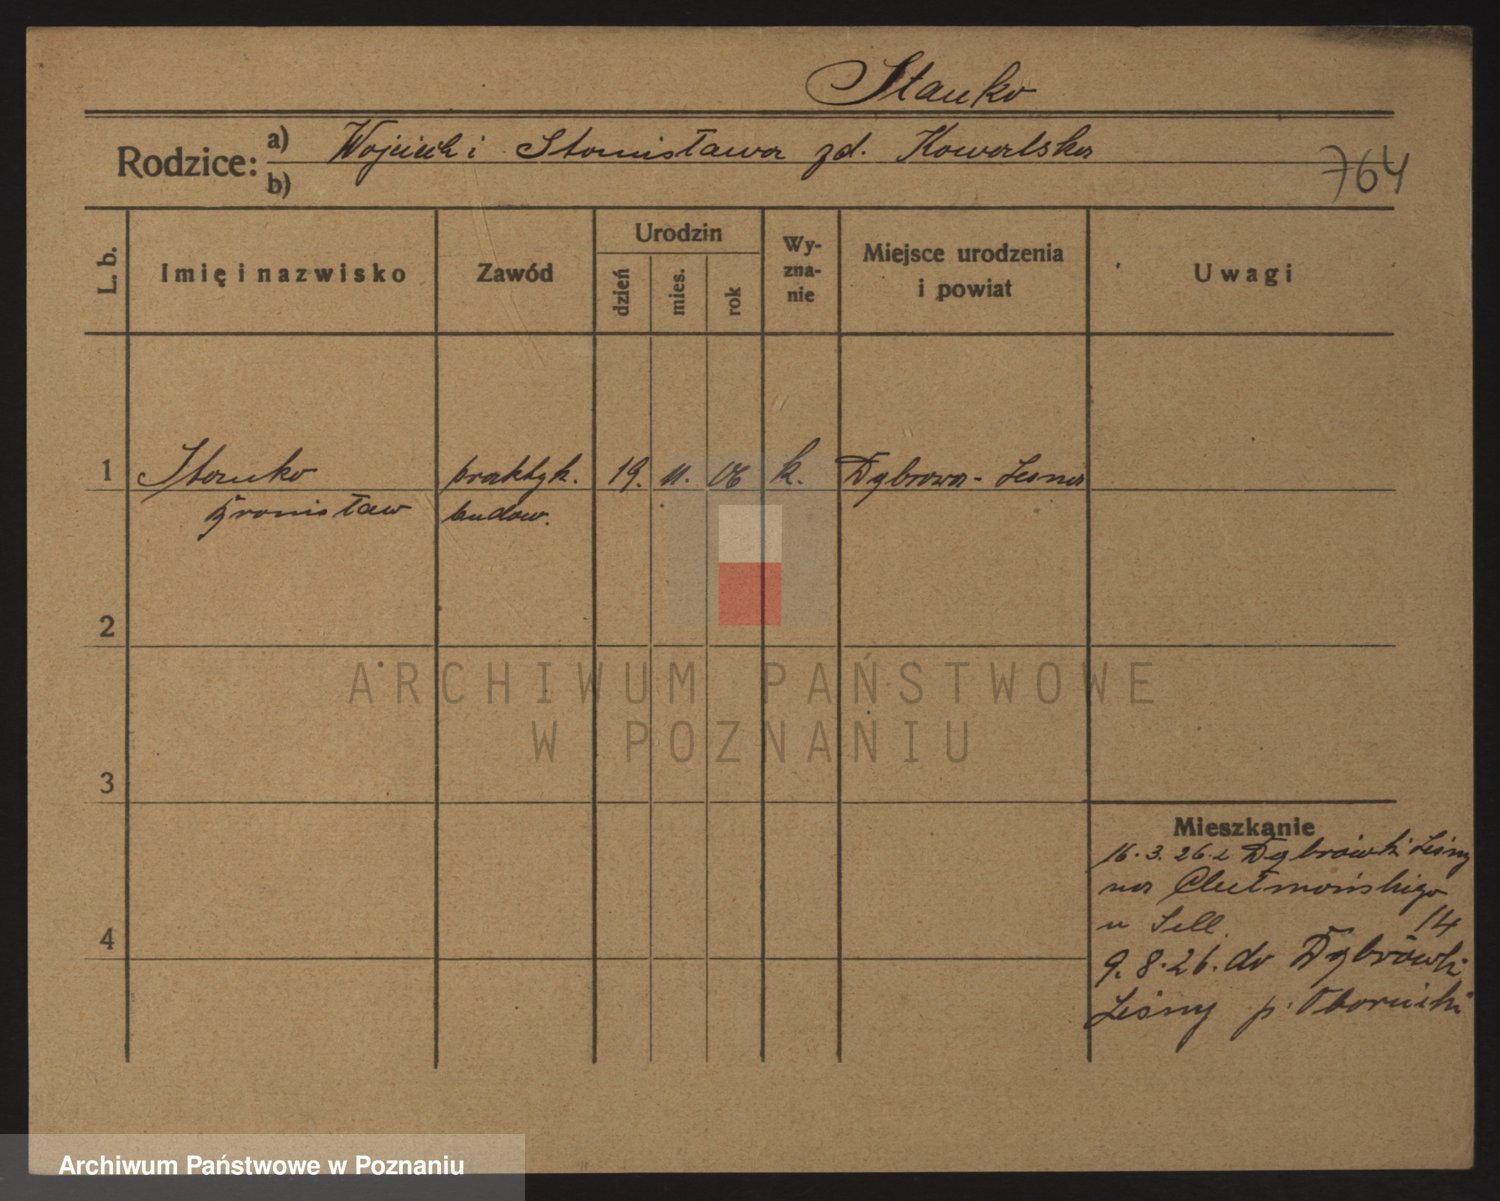 Stanko
Rodzice: a) Wojciech i Stanisława zd. Kowalska
b)
764
L. b.
Imię i nazwisko
Zawód
Urodzin
dzień
mies.
rok
Wy-
zna-
nie
Miejsce urodzenia
i powiat
Uwagi
1 Stanko praktyk. 19. 11. 06 k. Dąbrowa - Leśna
Bronisław budow.
2
3
4
Mieszkanie
16. 3. 26 z Dąbrówki Leśny
na Chełmońskiego
u Sell. 14
9. 8. 26. do Dąbrówki
Leśny p. Obornicki
ARCHIWUM PAŃSTWOWE
W POZNANIU
Archiwum Państwowe w Poznaniu